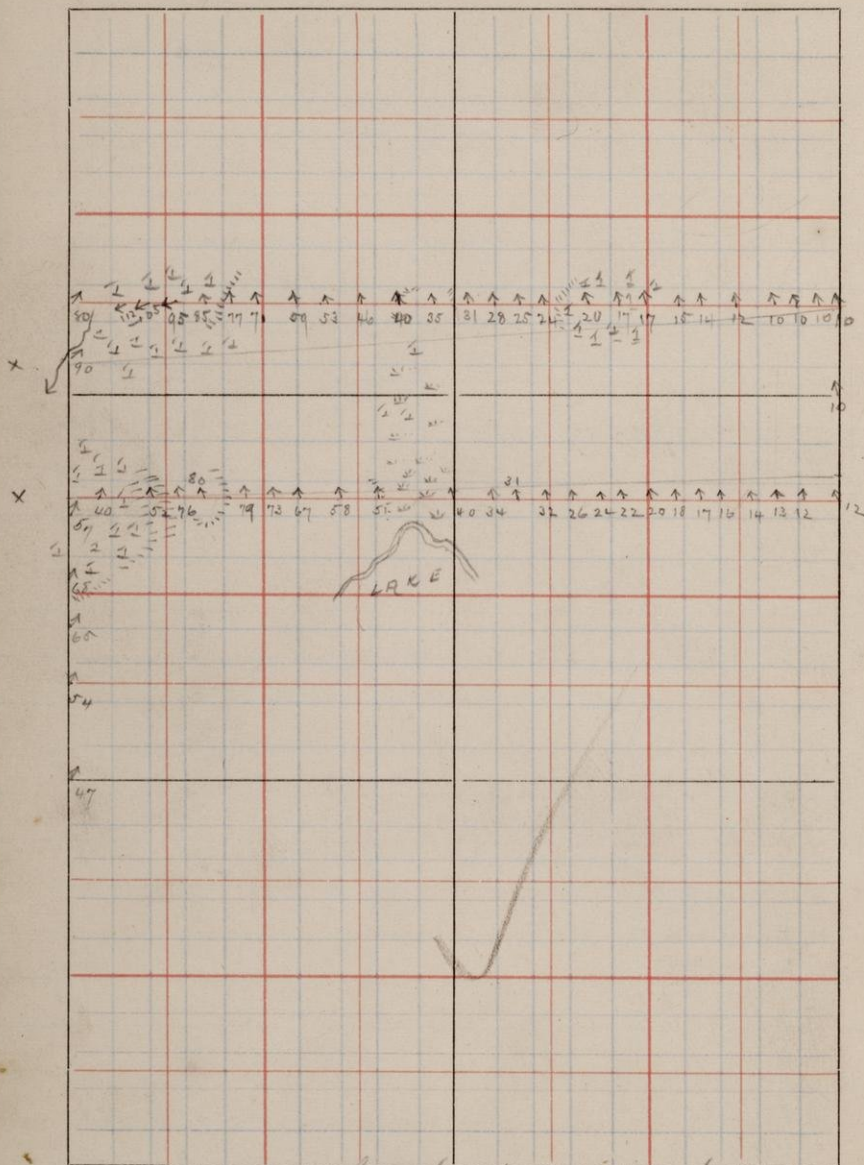 80 95 85 77 71 59 53 46 40 35 31 28 25 22 20 17 17 15 14 12 10 10 10 10
x
90
10
80 31
x
40 52 76 79 73 67 58 51 40 34 32 26 24 22 20 18 17 16 14 13 12 12
LAKE
65
65
54
47